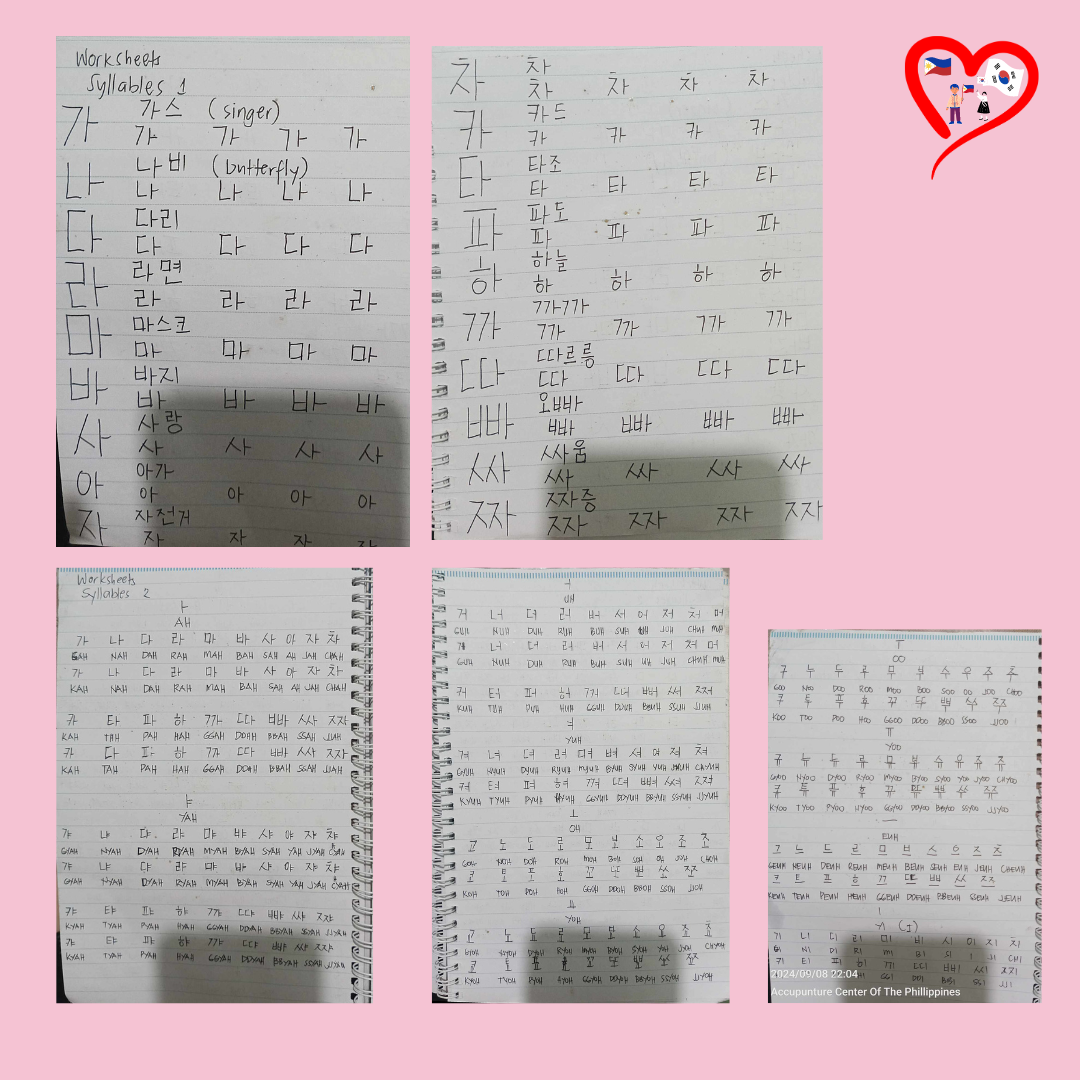 Worksheets
Syllables 1
가 가스 (singer)
가 가 가 가
나 나비 (butterfly)
나 나 나 나
다 다리
다 다 다 다
라 라면
라 라 라 라
마 마스크
마 마 마 마
바 바지
바 바 바 바
사 사랑
사 사 사 사
아 아가
아 아 아 아
자 자전거
자 자 자 자
차 차
차 차 차 차
카 카드
카 카 카 카
타 타조
타 타 타 타
파 파도
파 파 파 파
하 하늘
하 하 하 하
까 까까
까 까 까 까
따 따르릉
따 따 따 따
빠 오빠
빠 빠 빠 빠
싸 싸움
싸 싸 싸 싸
짜 짜증
짜 짜 짜 짜
Worksheets
Syllables 2
ㅏ
AH
가 나 다 라 마 바 사 아 자 차
GAH NAH DAH RAH MAH BAH SAH AH JAH CHAH
가 나 다 라 마 바 사 아 자 차
KAH NAH DAH RAH MAH BAH SAH AH JAH CHAH
카 타 파 하 까 따 빠 싸 짜
KAH TAH PAH HAH GGAH DDAH BBAH SSAH JJAH
카 다 파 하 까 따 빠 싸 짜
KAH TAH PAH HAH GGAH DDAH BBAH SSAH JJAH
ㅑ
YAH
갸 냐 댜 랴 먀 뱌 샤 야 쟈 챠
GYAH NYAH DYAH RYAH MYAH BYAH SYAH YAH JYAH
갸 냐 댜 랴 먀 뱌 샤 야 쟈 챠
GYAH NYAH DYAH RYAH MYAH BYAH SYAH YAH JYAH
캬 탸 퍄 햐 꺄 땨 뺘 쌰 쨔
KYAH TYAH PYAH HYAH GGYAH DDYAH BBYAH SSYAH JJYAH
캬 탸 퍄 햐 꺄 땨 뺘 쌰 쨔
KYAH TYAH PYAH HYAH GGYAH DDYAH BBYAH SSYAH JJYAH
ㅓ
UH
거 너 더 러 버 서 어 저 처 머
GUH NUH DUH RUH BUH SUH UH JUH CHUH MUH
거 너 더 러 버 서 어 저 처 머
GUH NUH DUH RUH BUH SUH UH JUH CHUH MUH
커 터 퍼 허 꺼 떠 뻐 써 쩌
KUH TUH PUH HUH GGUH DDUH BBUH SSUH JJUH
ㅕ
YUH
겨 녀 뎌 려 며 벼 셔 여 져 쳐
GYUH NYUH DYUH RYUH MYUH BYUH SYUH YUH JYUH CHYUH
켜 텨 펴 혀 껴 뗘 뼈 쎠 쪄
KYUH TYUH PYUH HYUH GGYUH DDYUH BBYUH SSYUH JJYUH
ㅗ
OH
고 노 도 로 모 보 소 오 조 초
GOH NOH DOH ROH MOH BOH SOH OH JOH CHOH
코 토 포 호 꼬 또 뽀 쏘 쪼
KOH TOH POH HOH GGOH DDOH BBOH SSOH JJOH
ㅛ
YOH
교 뇨 됴 료 묘 뵤 쇼 요 죠 쵸
GYOH NYOH DYOH RYOH MYOH BYOH SYOH YOH JYOH CHYOH
쿄 툐 표 효 꾜 뚀 뾰 쑈 쬬
KYOH TYOH PYOH HYOH GGYOH DDYOH BBYOH SSYOH JJYOH
ㅜ
OO
구 누 두 루 무 부 수 우 주 추
GOO NOO DOO ROO MOO BOO SOO OO JOO CHOO
쿠 투 푸 후 꾸 뚜 뿌 쑤 쭈
KOO TOO POO HOO GGOO DDOO BBOO SSOO JJOO
ㅠ
YOO
규 뉴 듀 류 뮤 뷰 슈 유 쥬 츄
GYOO NYOO DYOO RYOO MYOO BYOO SYOO YOO JYOO CHYOO
큐 튜 퓨 휴 뀨 뜌 쀼 쓔 쮸
KYOO TYOO PYOO HYOO GGYOO DDYOO BBYOO SSYOO JJYOO
ㅡ
EUH
그 느 드 르 므 브 스 으 즈 츠
GEUH NEUH DEUH REUH MEUH BEUH SEUH EUH JEUH CHEUH
크 트 프 흐 끄 뜨 쁘 쓰 쯔
KEUH TEUH PEUH HEUH GGEUH DDEUH BBEUH SSEUH JJEUH
ㅣ
기 니 디 리 미 비 시 이 지 치
GI NI DI RI MI BI SI I JI CHI
키 티 피 히 끼 띠 삐 씨 찌
GGI DDI BBI SSI JJI
2024/09/08 22:04
Accupunture Center Of The Phillippines